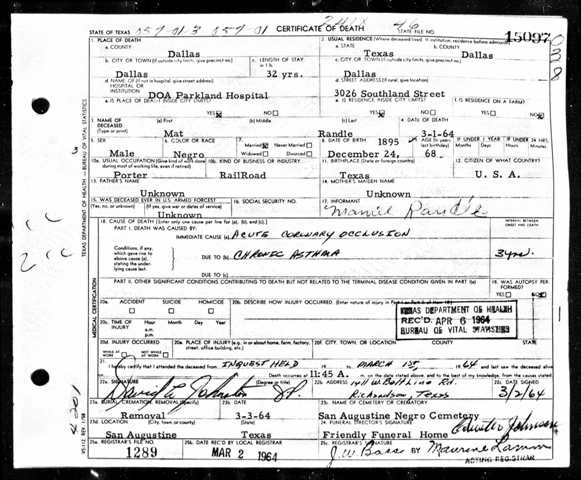 STATE OF TEXAS
CERTIFICATE OF DEATH
STATE FILE NO.
15097
1. PLACE OF DEATH
a. COUNTY
Dallas
2. USUAL RESIDENCE (Where deceased lived. If institution: residence before admission)
a. STATE
Texas
b. COUNTY
Dallas
b. CITY OR TOWN (If outside city limits, give precinct no.)
Dallas
c. LENGTH OF STAY
32 yrs.
c. CITY OR TOWN (If outside city limits, give precinct no.)
Dallas
d. NAME OF (If not in hospital, give street address)
HOSPITAL OR
INSTITUTION
DOA Parkland Hospital
d. STREET ADDRESS (If rural, give location)
3026 Southland Street
e. IS PLACE OF DEATH INSIDE CITY LIMITS?
YES NO
e. IS RESIDENCE INSIDE CITY LIMITS?
YES NO
f. IS RESIDENCE ON A FARM?
YES NO
3. NAME OF
DECEASED
(Type or print)
(a) First
Mat
(b) Middle
(c) Last
Randle
4. DATE OF DEATH
3-1-64
5. SEX
Male
6. COLOR OR RACE
Negro
7. Married Never Married
Widowed Divorced
8. DATE OF BIRTH 1895
December 24,
9. AGE
68
IF UNDER 1 YEAR
Months Days
IF UNDER 24 HRS.
Hours Min
10a. USUAL OCCUPATION (Give kind of work done
during most of working life, even if retired)
Porter
10b. KIND OF BUSINESS OR INDUSTRY
RailRoad
11. BIRTHPLACE (State or foreign country)
Texas
12. CITIZEN OF WHAT COUNTRY?
U. S. A.
13. FATHER'S NAME
Unknown
14. MOTHER'S MAIDEN NAME
Unknown
15. WAS DECEASED EVER IN U.S. ARMED FORCES?
(Yes, no, or unknown) (If yes, give war or dates of service)
Unknown
16. SOCIAL SECURITY NO.
17. INFORMANT
18. CAUSE OF DEATH (Enter only one cause per line for (a), (b), and (c).)
INTERVAL BETWEEN
ONSET AND DEATH
PART I. DEATH WAS CAUSED BY:
IMMEDIATE CAUSE (a) ACUTE CORONARY OCCLUSION
Conditions, if any,
which gave rise to
above cause (a),
stating the under-
lying cause last.
DUE TO (b) CHRONIC ASTHMA
3 yrs.
DUE TO (c)
PART II. OTHER SIGNIFICANT CONDITIONS CONTRIBUTING TO DEATH BUT NOT RELATED TO THE TERMINAL DISEASE CONDITION GIVEN IN PART I(a)
19. WAS AUTOPSY PERFORMED?
YES NO
20a. ACCIDENT SUICIDE HOMICIDE
20b. DESCRIBE HOW INJURY OCCURRED.
TEXAS DEPARTMENT OF HEALTH
REC'D APR 6 1964
BUREAU OF VITAL STATISTICS
20c. TIME OF
INJURY
Hour Month Day Year
a.m.
p.m.
20d. INJURY OCCURRED
WHILE AT WORK NOT WHILE AT WORK
20e. PLACE OF INJURY (e.g., in or about home, farm, factory,
street, office building, etc.)
20f. CITY, TOWN, OR LOCATION
COUNTY STATE
21. I hereby certify that I attended the deceased from INQUEST HELD to MARCH 1st, 1964
Death occurred at 11:45 A. m. on the date stated above, and to the best of my knowledge, from the causes stated
22a. SIGNATURE (Degree or title)
David L. Johnston J.P.
22b. ADDRESS
Richardson, Texas
22c. DATE SIGNED
3/2/64
23a. BURIAL, CREMATION, REMOVAL (Specify)
Removal
23b. DATE
3-3-64
23c. NAME OF CEMETERY OR CREMATORY
San Augustine Negro Cemetery
23d. LOCATION (City, town, or county) (State)
San Augustine Texas
24. FUNERAL DIRECTOR'S SIGNATURE
Friendly Funeral Home
25a. REGISTRAR'S FILE NO.
1289
25b. DATE REC'D BY LOCAL REGISTRAR
MAR 2 1964
25c. REGISTRAR'S SIGNATURE
J. W. Bass BY Maurine Lamm
ACTING REGISTRAR
TEXAS DEPARTMENT OF HEALTH — BUREAU OF VITAL STATISTICS
MEDICAL CERTIFICATION